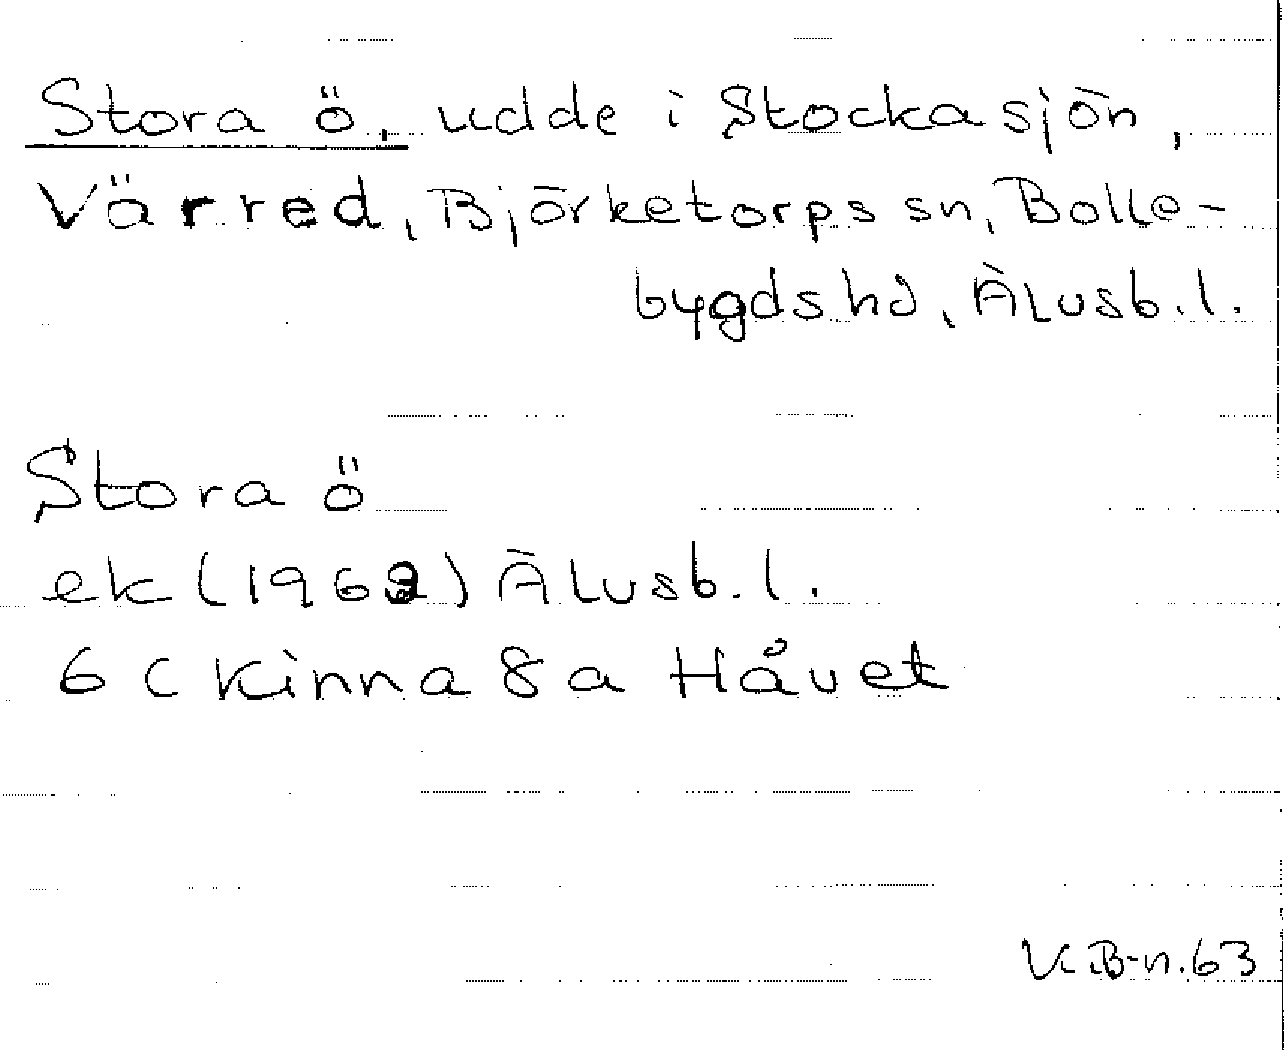 Stora ö, udde i Stockasjön,
Värred, Björketorps sn, Bolle-
bygds hd, Älvsb. l.
Stora ö
ek (1962) Älvsb. l.
6 C Kinna 8 a Håvet
K. B-n. 63